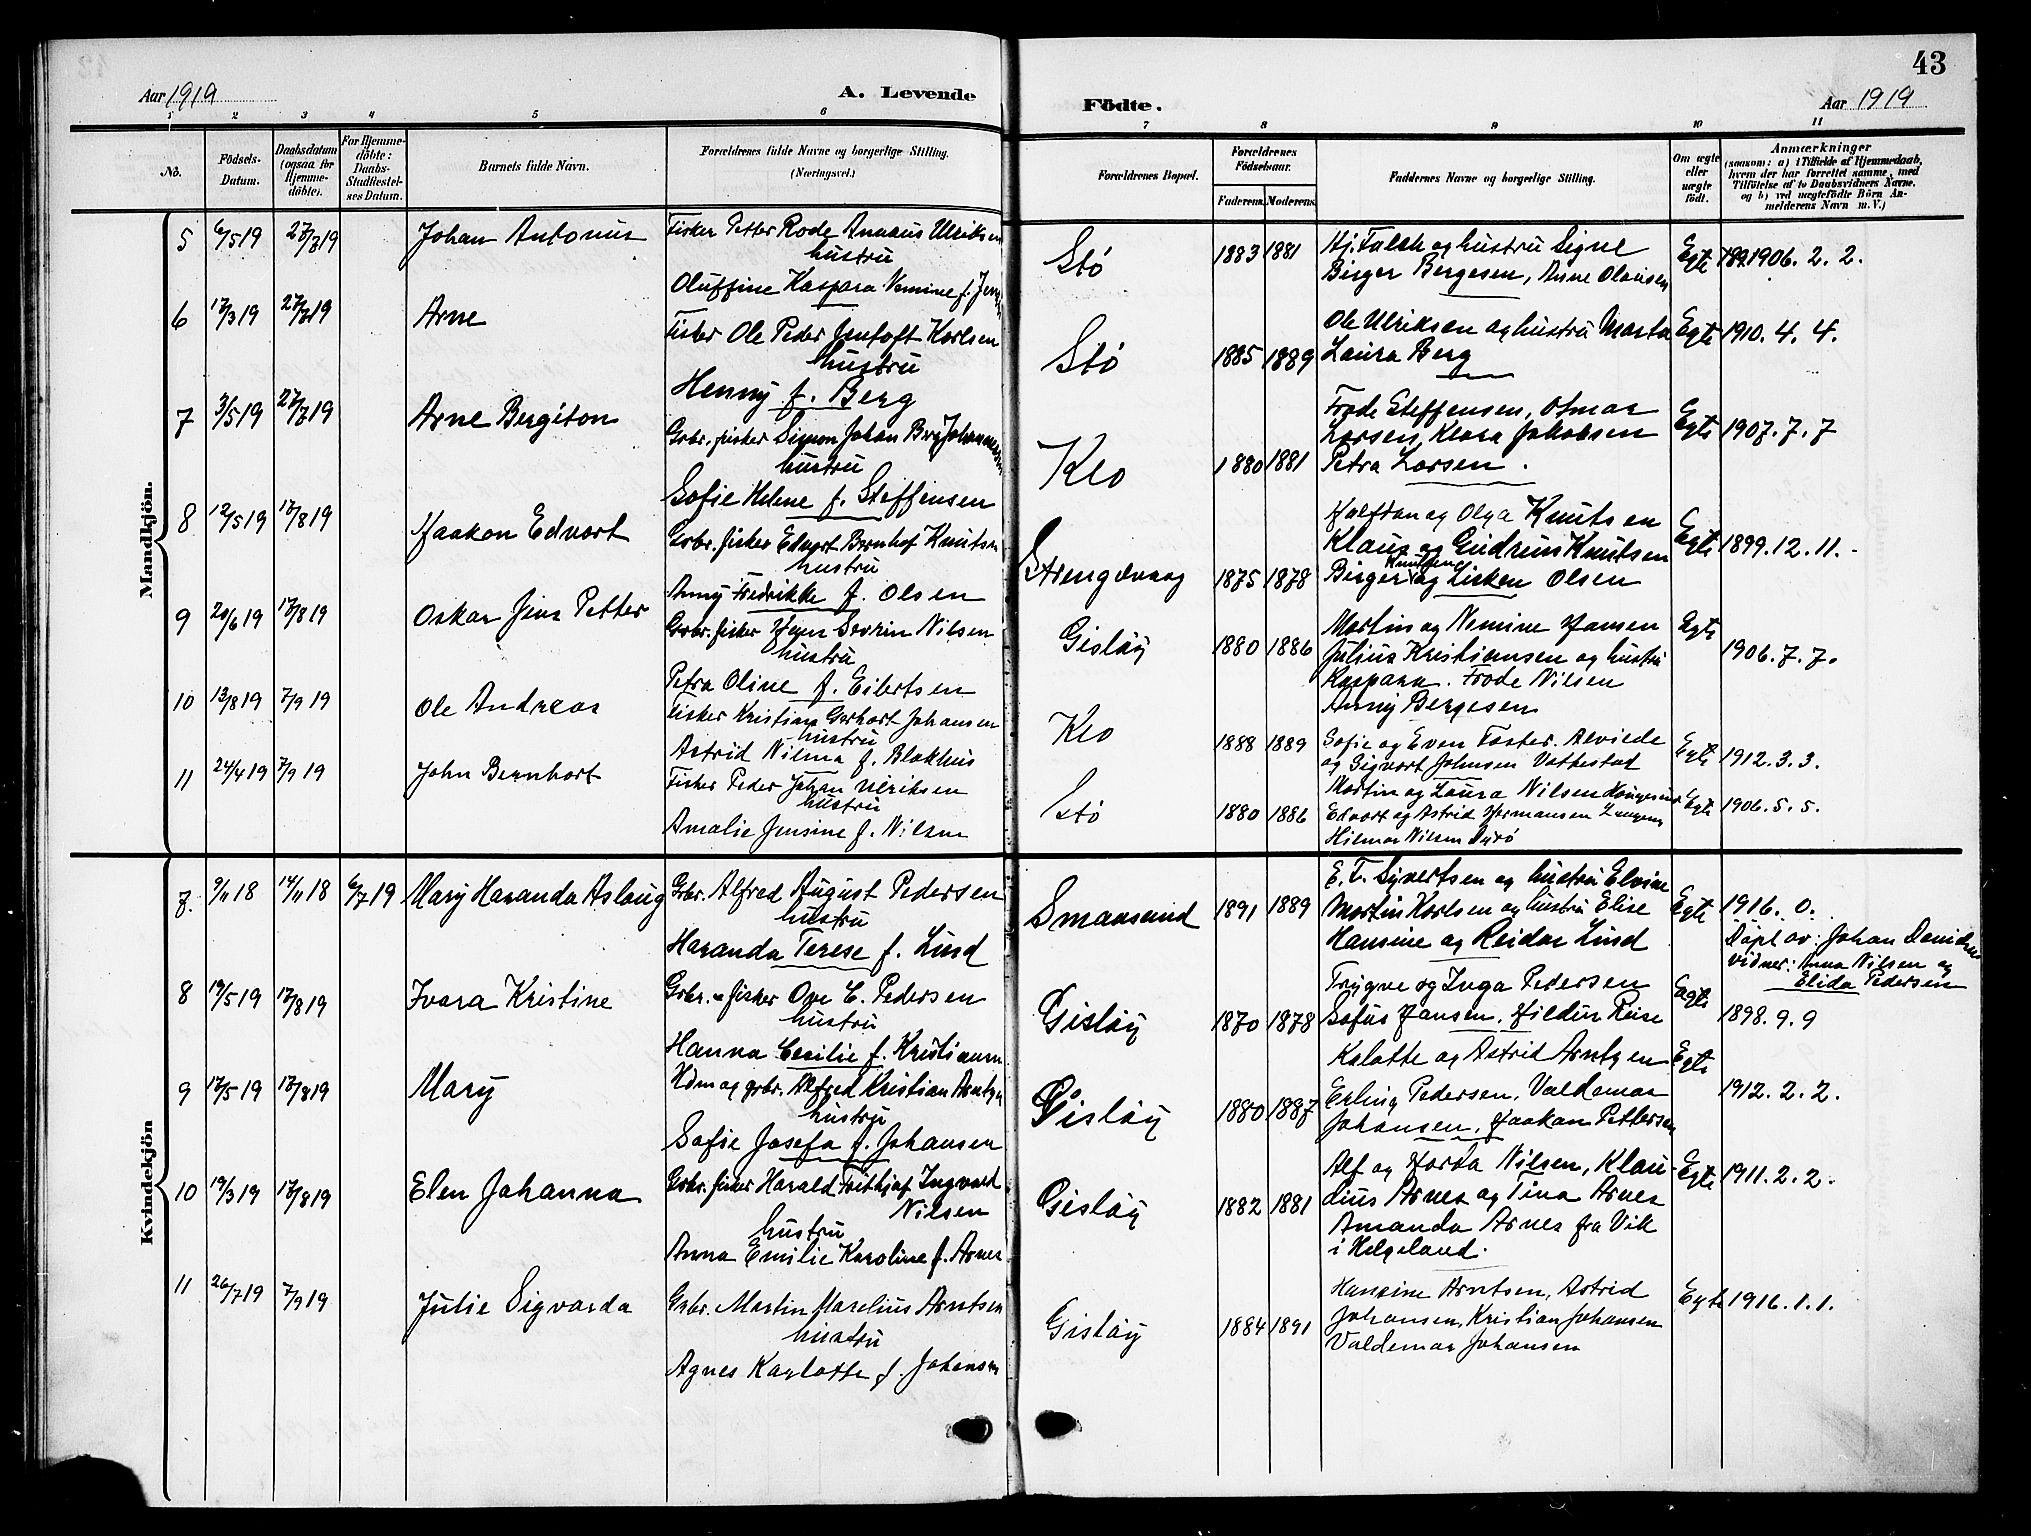 43
Aar 1919
A. Levende
Födte.
Aar 1919
1 2 3 4 5 6 7 8 9 10 11
No.
Födsels-
Datum.
Daabsdatum
(ogsaa for
Hjemme-
döbte).
For Hjemme-
döbte:
Daabs-
Stadfæstel-
ses Datum.
Barnets fulde Navn.
Forældrenes fulde Navne og borgerlige Stilling.
(Næringsvei.)
Forældrenes Bopæl.
Forældrenes
Födselsaar.
Faderens. Moderens.
Faddernes Navne og borgerlige Stilling.
Om ægte
eller
uægte
födt.
Anmærkninger
(saasom: a) i Tilfælde af Hjemmedaab,
hvem der har forrettet samme, med
Tilföielse af to Daabsvidners Navne,
og b) ved uægtefödte Börn An-
melderens Navn m. V.)
Mandkjön.
5 6/5 19 27/7 19 Johan Antonius
Fisker Petter Rode Annæus Ulriksen
hustru
Oluffine Kaspara Nemine f.
Stö 1883 1881
Hj. Falch og hustru Signe
Birger Bergesen, Anne Olausen
Egte 1906. 2. 2.
6 17/3 19 27/7 19 Arne
Fisker Ole Peder Jentoft Karlsen
hustru
Henny f. Berg
Stö 1885 1889
Ole Ulriksen og hustru Marta
Laura Berg
Egte 1910. 4. 4.
7 3/5 19 27/7 19 Arne Bergiton
Grbr. fisker Simon Johan Berg Johannessen
hustru
Sofie Helene f. Steffensen
Klo 1880 1881
Frode Steffensen, Otmar
Larsen, Klara Jakobsen
Petra Larsen.
Egte 1907. 7. 7
8 12/5 19 17/8 19 Haakon Edvart
Grbr. fisker Edvart Bernhof Knutsen
hustru
Anny Fredrikke f. Olsen
Strengelvaag 1875 1878
Halfdan og Olga Knutsen
Klaus og Gudrun Knutsen
Birger Knutsen og Lisken Olsen
Egte 1899. 12. 11.
9 20/6 19 17/8 19 Oskar Jens Petter
Grbr. fisker Hejer Sevrin Nilsen
hustru
Petra Oline f. Eilertsen
Gisløy 1880 1886
Martin og Nemine Hansen
Julius Kristiansen og hustru
Kaspara. Frode Nilsen
Anny Bergesen
Egte 1906. 7. 7.
10 13/8 19 7/9 19 Ole Andreas
Fisker Kristian Gerhart Johansen
hustru
Astrid Nilma f. Blokhus
Klo 1888 1889
Sofie og Even Foster. Alvilde
og Sigvart Johnsen Vottestad
Egte 1912. 3. 3.
11 24/4 19 7/9 19 John Bernhart
Fisker Peder Johan Ulriksen
hustru
Amalie Jensine f. Nilsen
Stö 1880 1886
Martin og Laura Nilsen
Edvart og Astrid Hermansen
Hilmar Nilsen Dyrö
Egte 1906. 5. 5.
Kvindekjön
7. 9/11 18 14/11 18 6/7 19 Mary Haranda Aslaug
Grbr. Alfred August Pedersen
hustru
Haranda Terese f. Lind
Smaasund 1891 1889
E. T. Syvertsen og hustru Elvine
Martin Karlsen og hustru Elise
Hansine og Reidar Lind
Egte 1916. 0.
Döpt av: Johan Davidsen
vidner: Anna Nilsen og
Elida Pedersen
8 19/5 19 17/8 19 Ivara Kristine
Grbr. - fisker Ove C. Pedersen
hustru
Hanna Cecilie f. Kristiansen
Gisløy 1870 1878
Trygve og Inga Pedersen
Sofus Hansen, Hildur Reise
Egte 1898. 9. 9
9 17/5 19 17/8 19 Mary
Kdm og grbr. Alfred Kristian Arntzen
hustru
Sofie Josefa f. Johansen
Gisløy 1880 1887
Kalotte og Astrid Arntzen
Erling Pedersen, Valdemar
Johansen, Haakon Pettersen
Egte 1912. 2. 2.
10 19/3 19 17/8 19 Elen Johanna
Grbr. fisker Harald Frithjof Ingvald
Nilsen
hustru
Anna Emilie Karoline f. Arnes
Gisløy 1882 1881
Alf og Horda Nilsen, Klau-
dius Arnes og Tina Arnes
Amanda Arnes fra Vik
i Helgeland.
Egte 1911. 2. 2.
11 26/7 19 7/9 19 Julie Sigvarda
Grbr. Martin Marelius Arntsen
hustru
Agnes Karlotte f. Johansen
Gisløy 1884 1891
Hansine Arntsen, Astrid
Johansen, Kristian Johansen
Valdemar Johansen
Egte 1916. 1. 1.